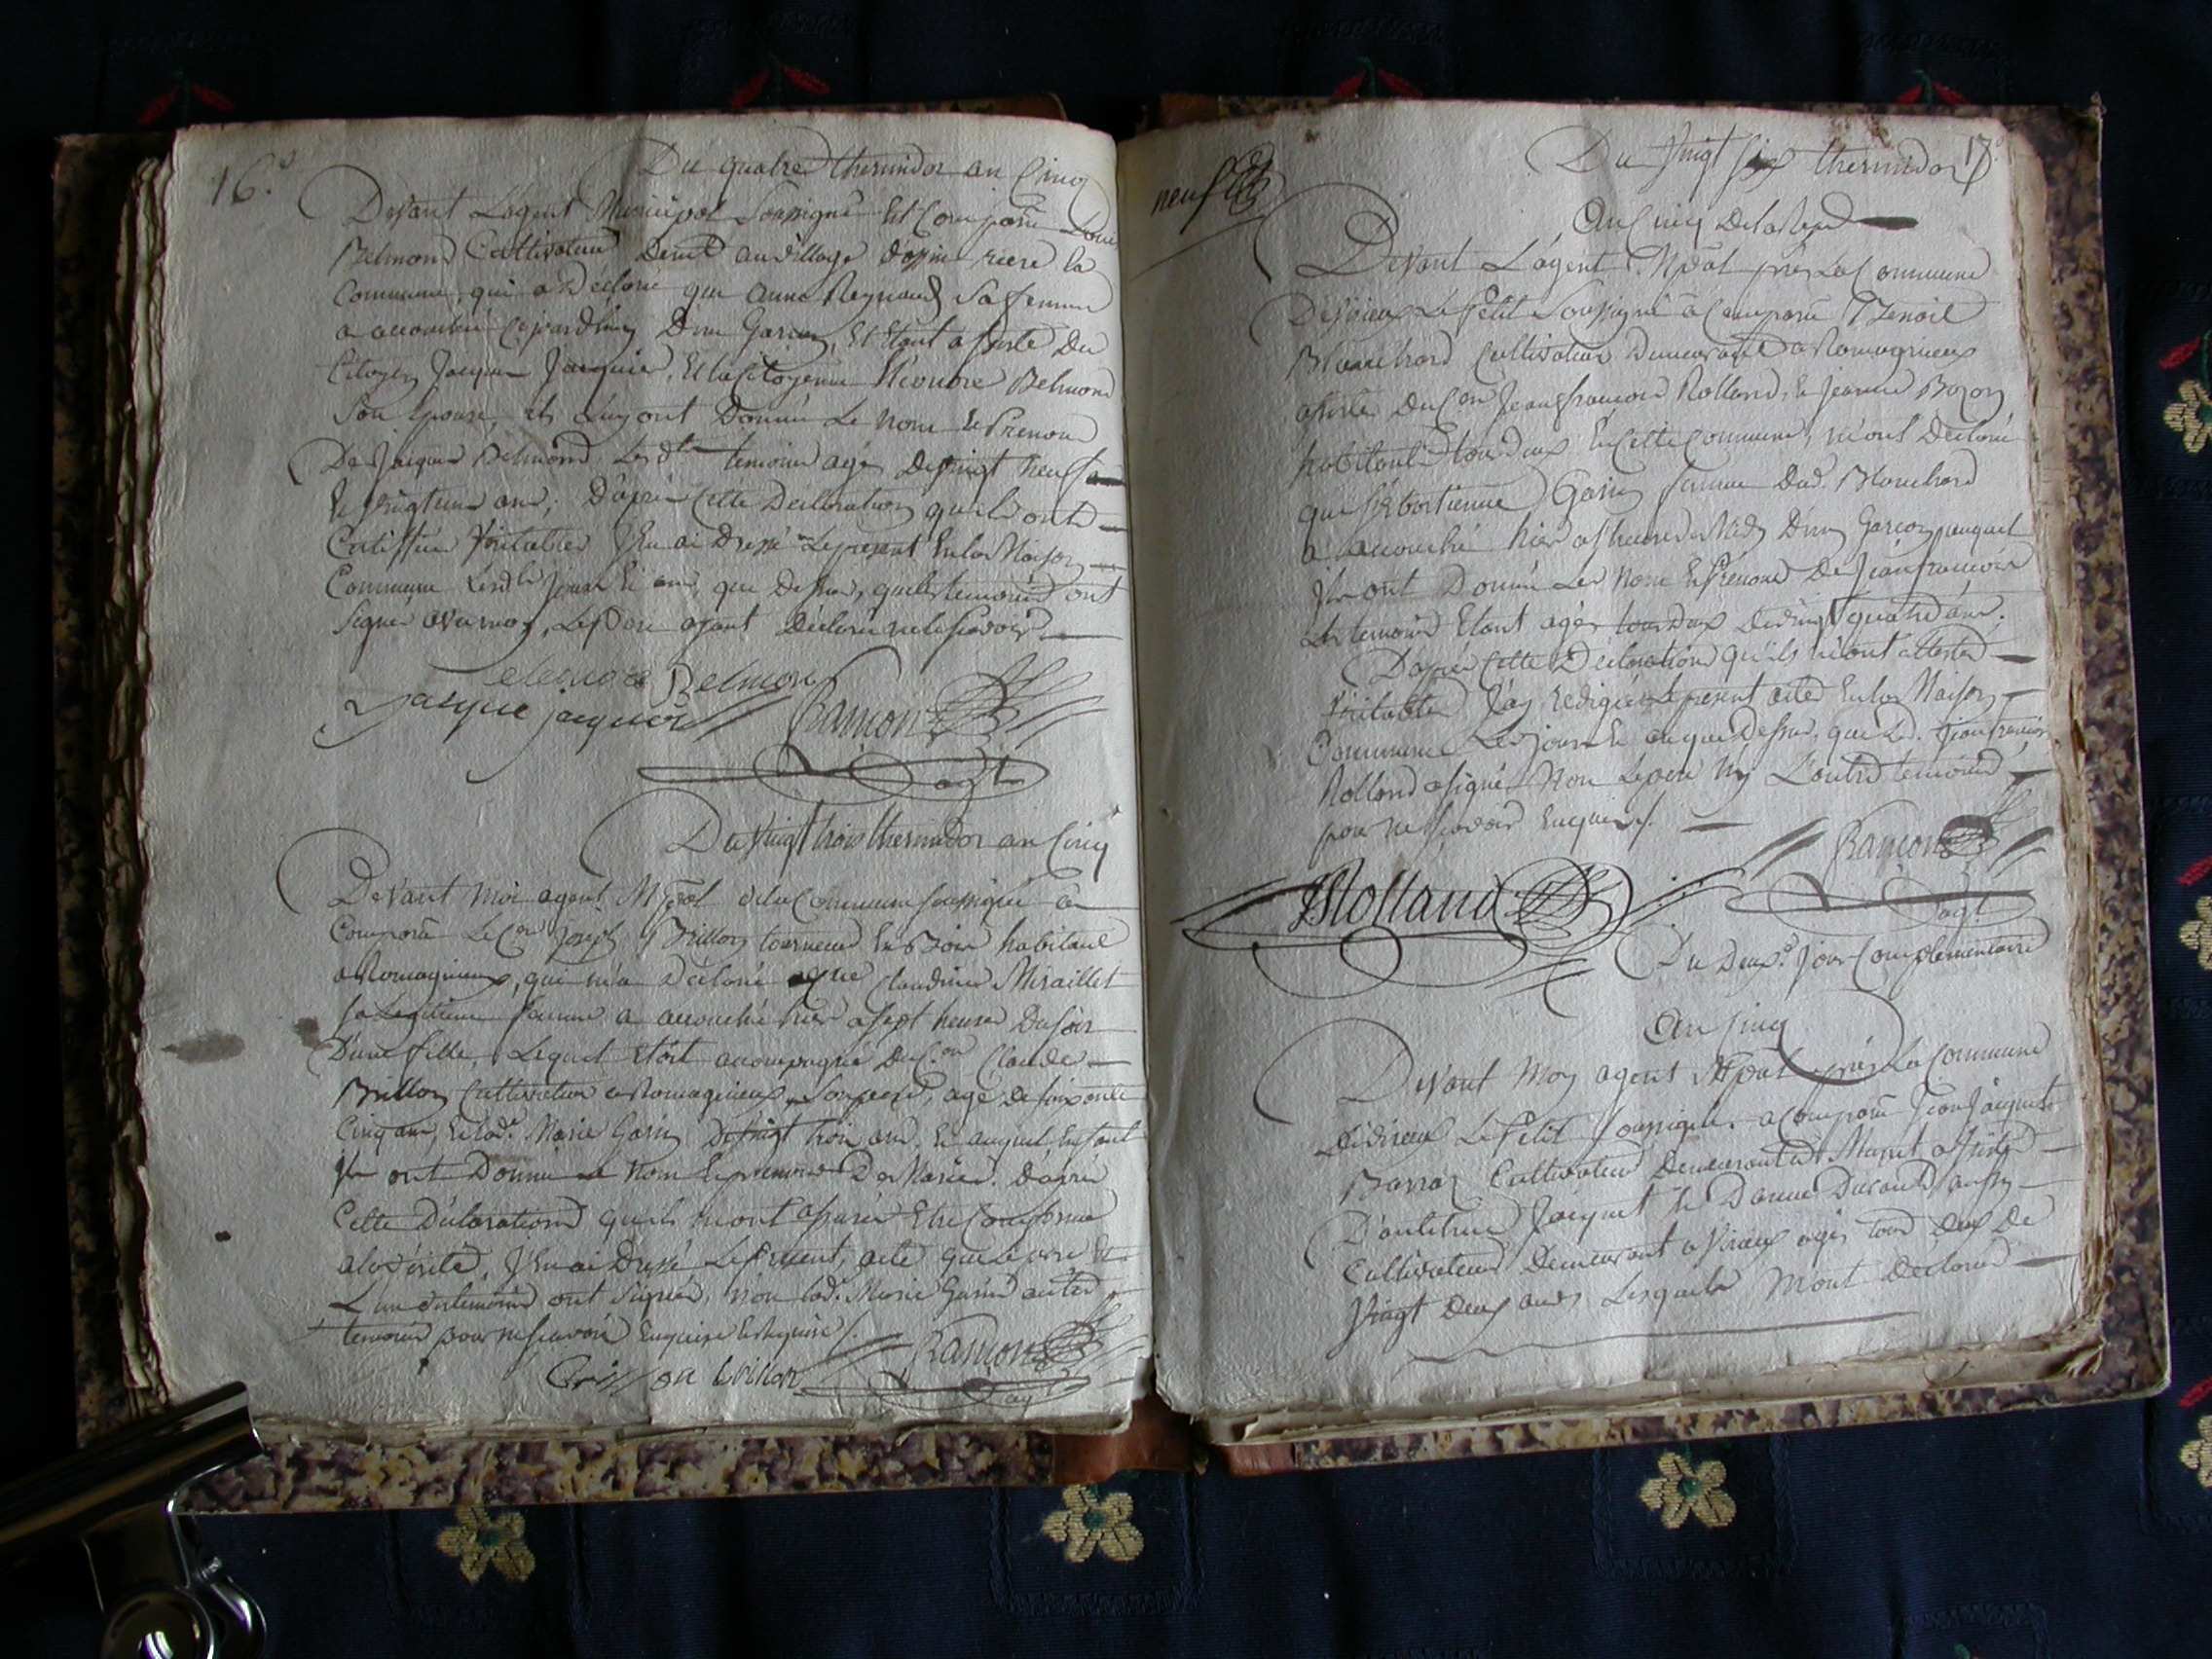 16.e
Du quatre thermidor an Cinq
Devant L'agent Municipal Soussigné Est Comparu Loui
Belmond Cultivateur Demt au village d'appin riere la
Commune, qui a Déclaré que anne Reynaud Sa femme
a accouché Cejourdhuy D'un Garcon, Et Etant assisté Du
Citoyen Jacque Jacquier, Et la Citoyenne Eléonore Belmond
Son Epouse, ils Luy ont Donné Le Nom Et Prenom
De Jacques Belmond Lesdts temoins agés De vingt neuf
Et vingt un ans; D'après Cette Declaration qu'ils ont
Certiffiée Véritable J'En ai Dressé Le présent En la Maison
Commune Lesdts Jour Et an que Dessus, que les temoins ont
Signé avec moy, Le Pere ayant Déclaré ne le Scavoir
eleonore Belmon
Jacque jacquier Ramon
agt
Du Vingt trois thermidor an Cinq
Devant Moi agent Mpal de la Commune soussigné a
Comparu Le Cen Joseph Brillon tourneur En Bois habitant
a Romagnieux, qui m'a Déclaré que Claudine Miraillet
Sa Legitime femme a accouché hier a sept heures Du soir
D'une fille, Lequel étoit accompagné Du Cen Claude
Brillon Cultivateur a Romagnieux, Son pere, agé de soixante
Cinq ans, Et lade Marie Garin De vingt trois ans, Et auquel Enfant
Ils ont Donné Le Nom Et prenom De Marie. D'après
Cette Déclaration qu'ils m'ont assuré Etre Conforme
a la vérité, J'En ai Dressé Le Present acte que Le pere Et
L'un des temoins ont Signés, Non lade Marie Garin autre
temoin pour ne Scavoir Enquise Et Requise
Brillon Ramon
agt
neuf
17.e
Du Vingt Six thermidor
an Cinq De la Repe
Devant L'agent Mpal près La Commune
De Vireux Le Petit Soussigné a Comparu Benoit
Blanchard Cultivateur Demeurant a Romagnieux
assisté Du Cen Jean François Rolland, Et Jeanne Bozon
habitants tous Deux En Cette Commune, m'ont Déclaré
que Sébastienne Garin femme Dud. Blanchard
a accouché hier a l'heure de Midy D'un Garcon auquel
Ils ont Donné Les Nom Et Prénom De Jean françois
Les temoins Etant agés tous Deux De Vingt quatre ans.
D'après Cette Déclaration qu'ils m'ont attesté
Véritable J'ay redigé Le present acte En la Maison
Commune Les jour Et an que Dessus, que Led. Jean françois
Rolland a signé Non Le pere Ny L'autre temoin
pour ne Scavoir Enquis
Ramon
JfRolland
agt
Du Deuxe Jour Complementaire
An Cinq
Devant Moy agent Mpal près La Commune
De Vireux Le Petit soussigné, a Comparu Jean Jacques
Barraz Cultivateur Demeurant a Muret, assisté
D'antoine Jacquet Et Danne Durand aussy
Cultivateurs Demeurant a Vireux agés tous Deux De
Vingt Deux ans Lesquels M'ont Déclaré